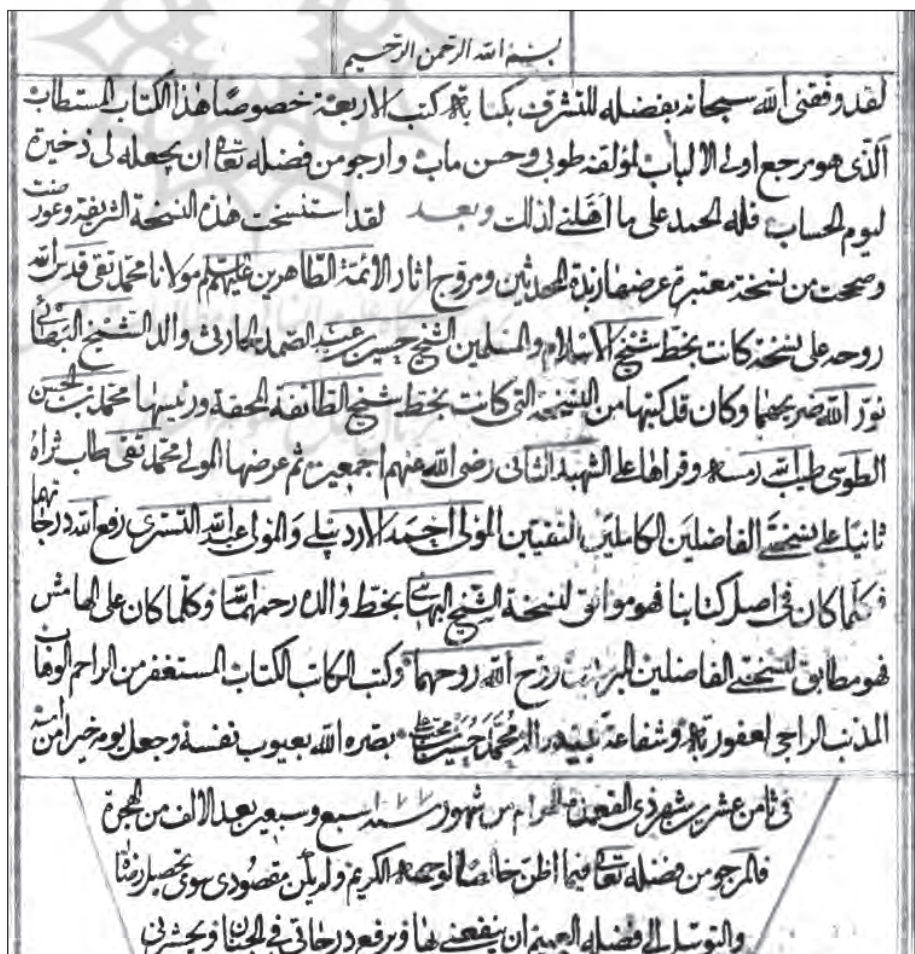 بسم الله الرحمن الرحيم
لقد وفقنی الله سبحانه بفضله للتشرف بکتابة کتب الاربعة خصوصًا هذا الکتاب المستطاب
الّذی هو مرجع اولی الالباب لمؤلفه طوبی وحسن ماب وارجو من فضله تعالی ان یجعله لی ذخیرة
لیوم الحساب فله الحمد علی ما اهّلنی لذلک وبعد لقد استنسخت هذه النسخة الشریفة وعورضت
وصححت من نسخة معتبرة عرضها زبدة المحدثین ومروج اثار الائمة الطاهرین علیهم مولانا محمّد تقی قدس الله
روحه علی نسخة کانت بخط شیخ الاسلام والمسلمین الشیخ حسین بن عبد الصمد الحارثی والد الشیخ البهائی
نوّر الله ضریحهما وکان قد کتبها من النسخة التی کانت بخط شیخ الطائفة المحقة ورئیسها محمّد بن الحسن
الطوسی طیب الله رمسه وقراها علی الشهید الثانی رضی الله عنهم اجمعین ثم عرضها المولی محمّد تقی طاب ثراه
ثانیا علی نسختی الفاضلین الکاملین التقیین المولی احمد الاردبیلی والمولی عبد الله التستری رفع الله درجاتهما
فکلّما کان فی اصل کتابنا فهو موافق لنسخة الشیخ البهائی بخط والده رحمهما الله وکلّما کان علی الهامش
فهو مطابق لنسختی الفاضلین روّح الله روحهما وکتب الکاتب الکتاب المستغفر من الراحم الوهاب
المذنب الراجی لعفو ربه وشفاعة نبیه محمّد حسین بصره الله بعیوب نفسه وجعل یومه خیرا من امسه
فی ثامن عشرین شهر ذی القعدة الحرام من شهور سنه سبع وسبعین بعد الالف من الهجرة
فالمرجو من فضله تعالی فیما اظن خالصًا لوجهه الکریم ولم یکن مقصودی سوی تحصیل رضاه
والتوسل الی فضله العمیم ان ینفعنی بها ویرفع درجاتی فی الجنان ویحشرنی